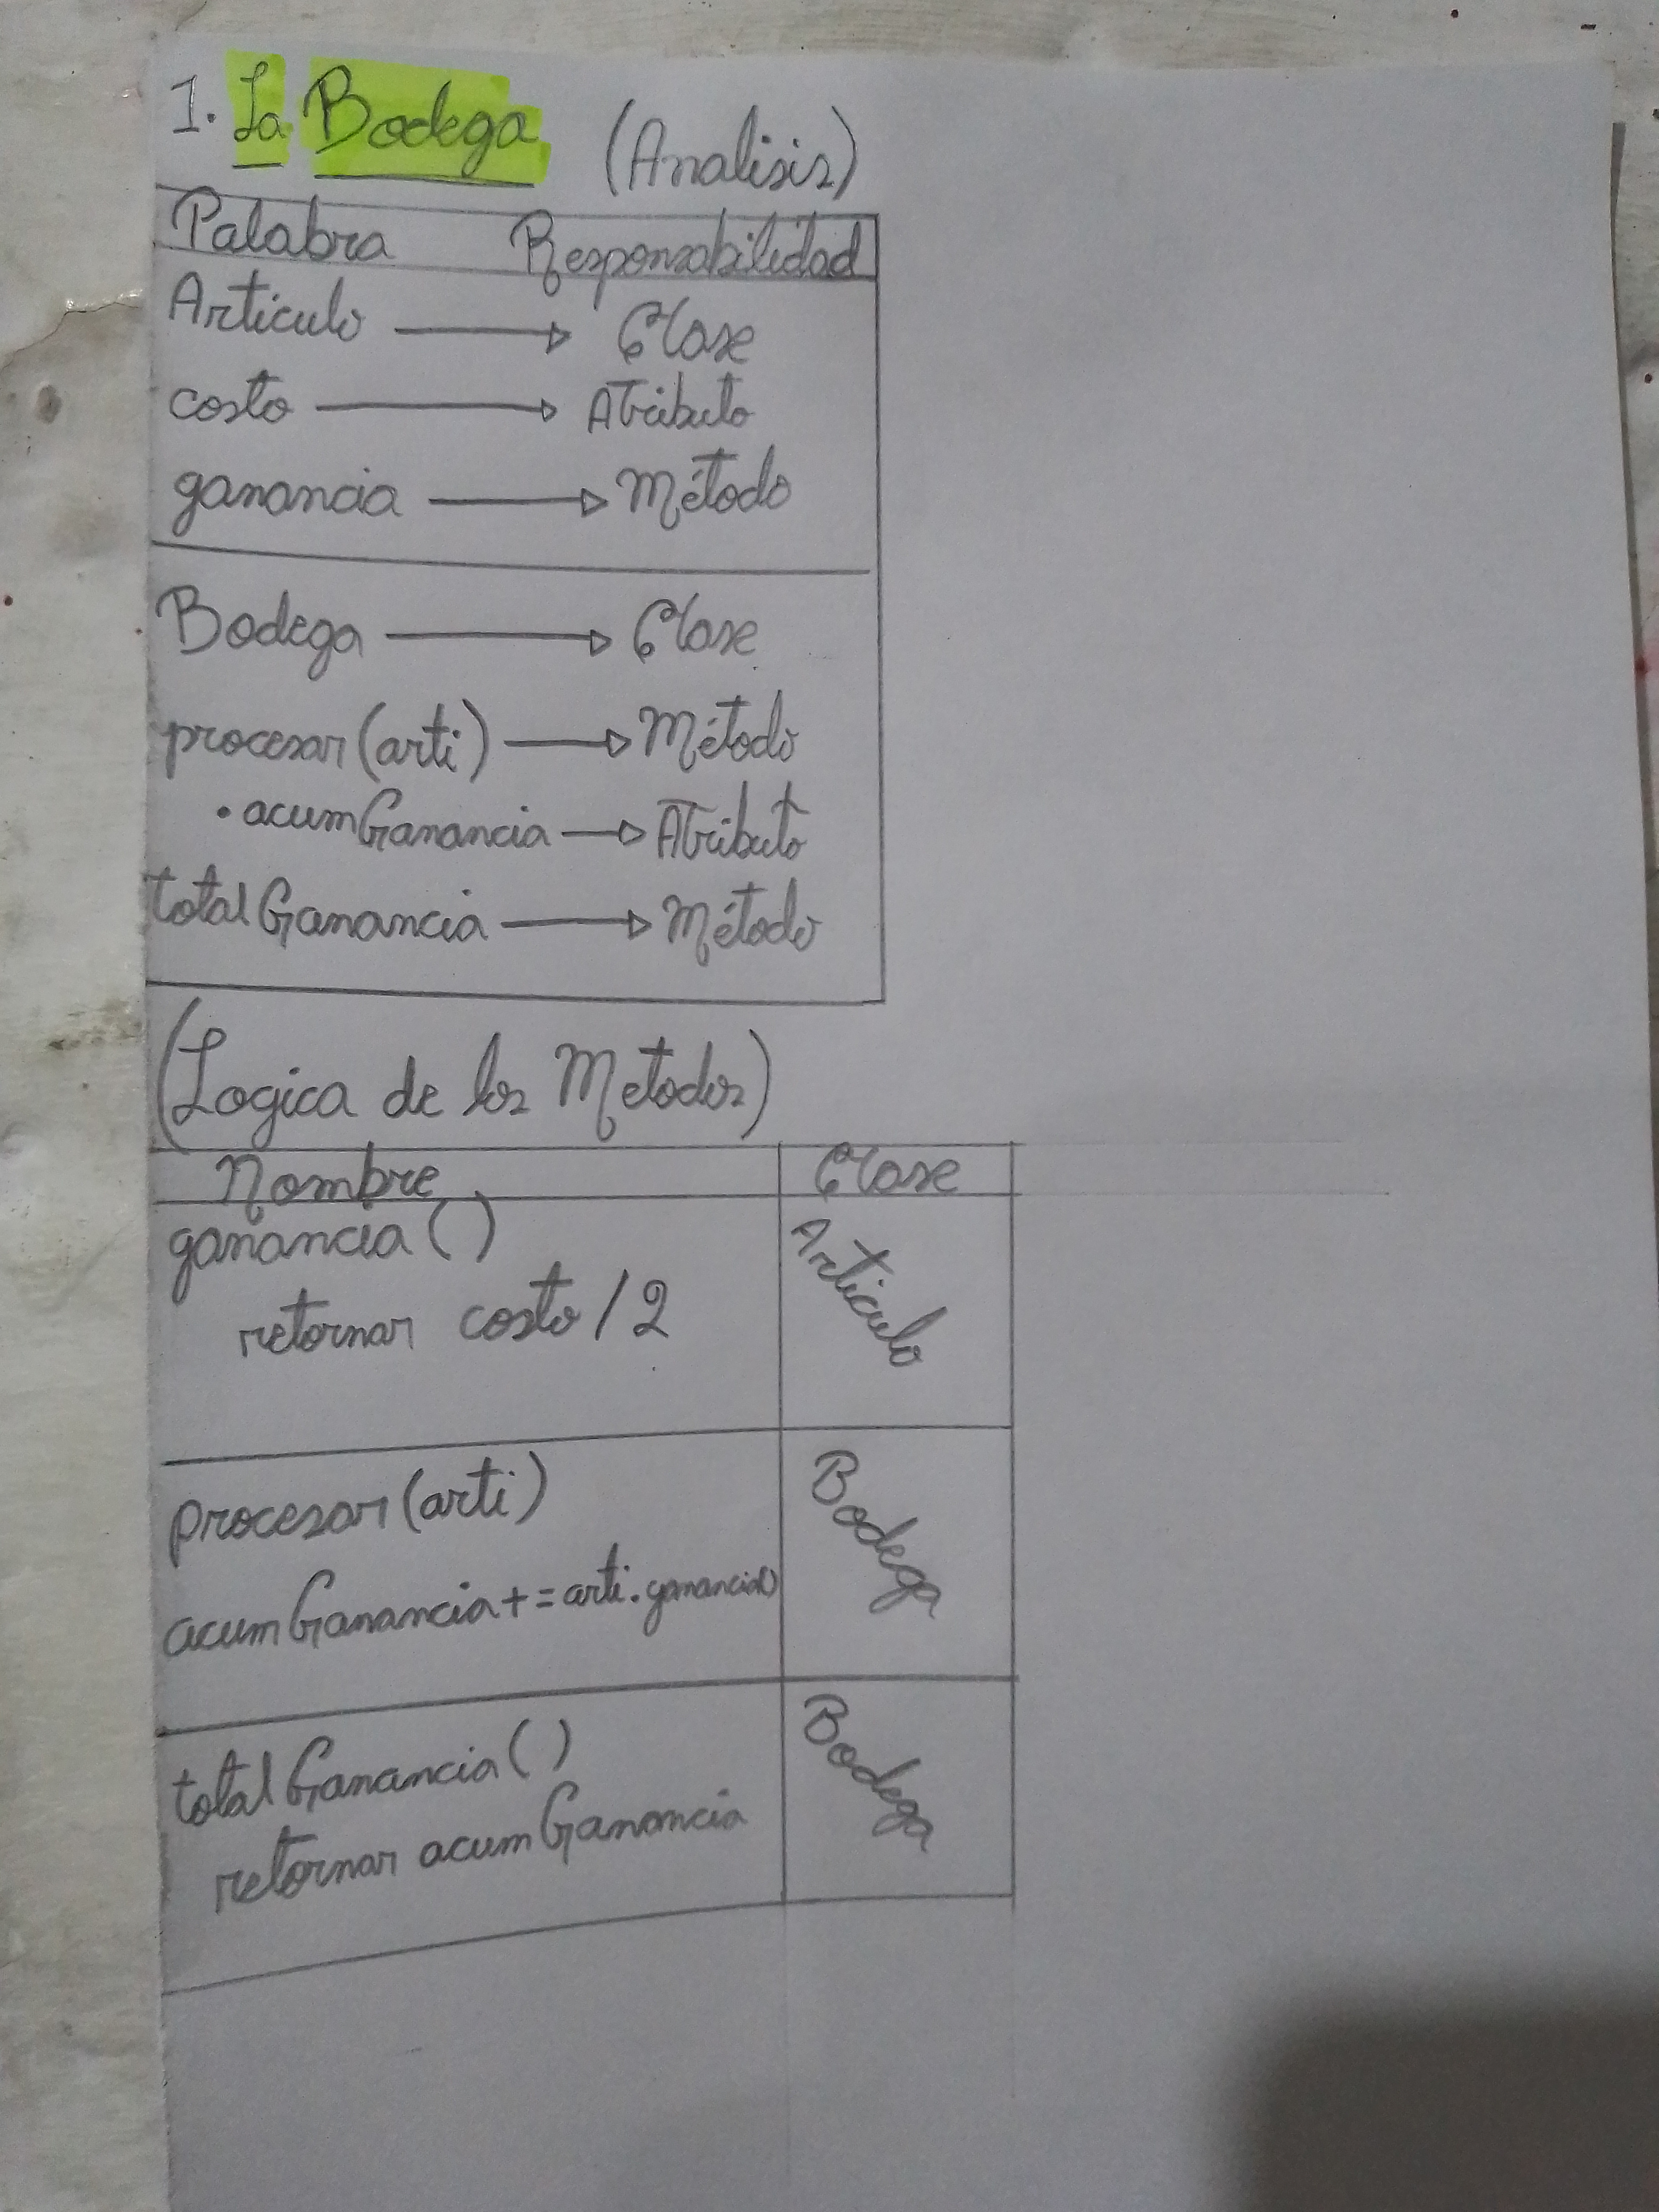 1. La Bodega (Analisis)
Palabra Responsabilidad
Articulo → Clase
costo → Atributo
ganancia → Método
Bodega → Clase
procesar(arti) → Método
• acumGanancia → Atributo
totalGanancia → Método
(Logica de los Metodos)
Nombre Clase
ganancia()
retornar costo / 2
Articulo
procesar(arti)
acumGanancia += arti.ganancia()
Bodega
totalGanancia()
retornar acumGanancia
Bodega